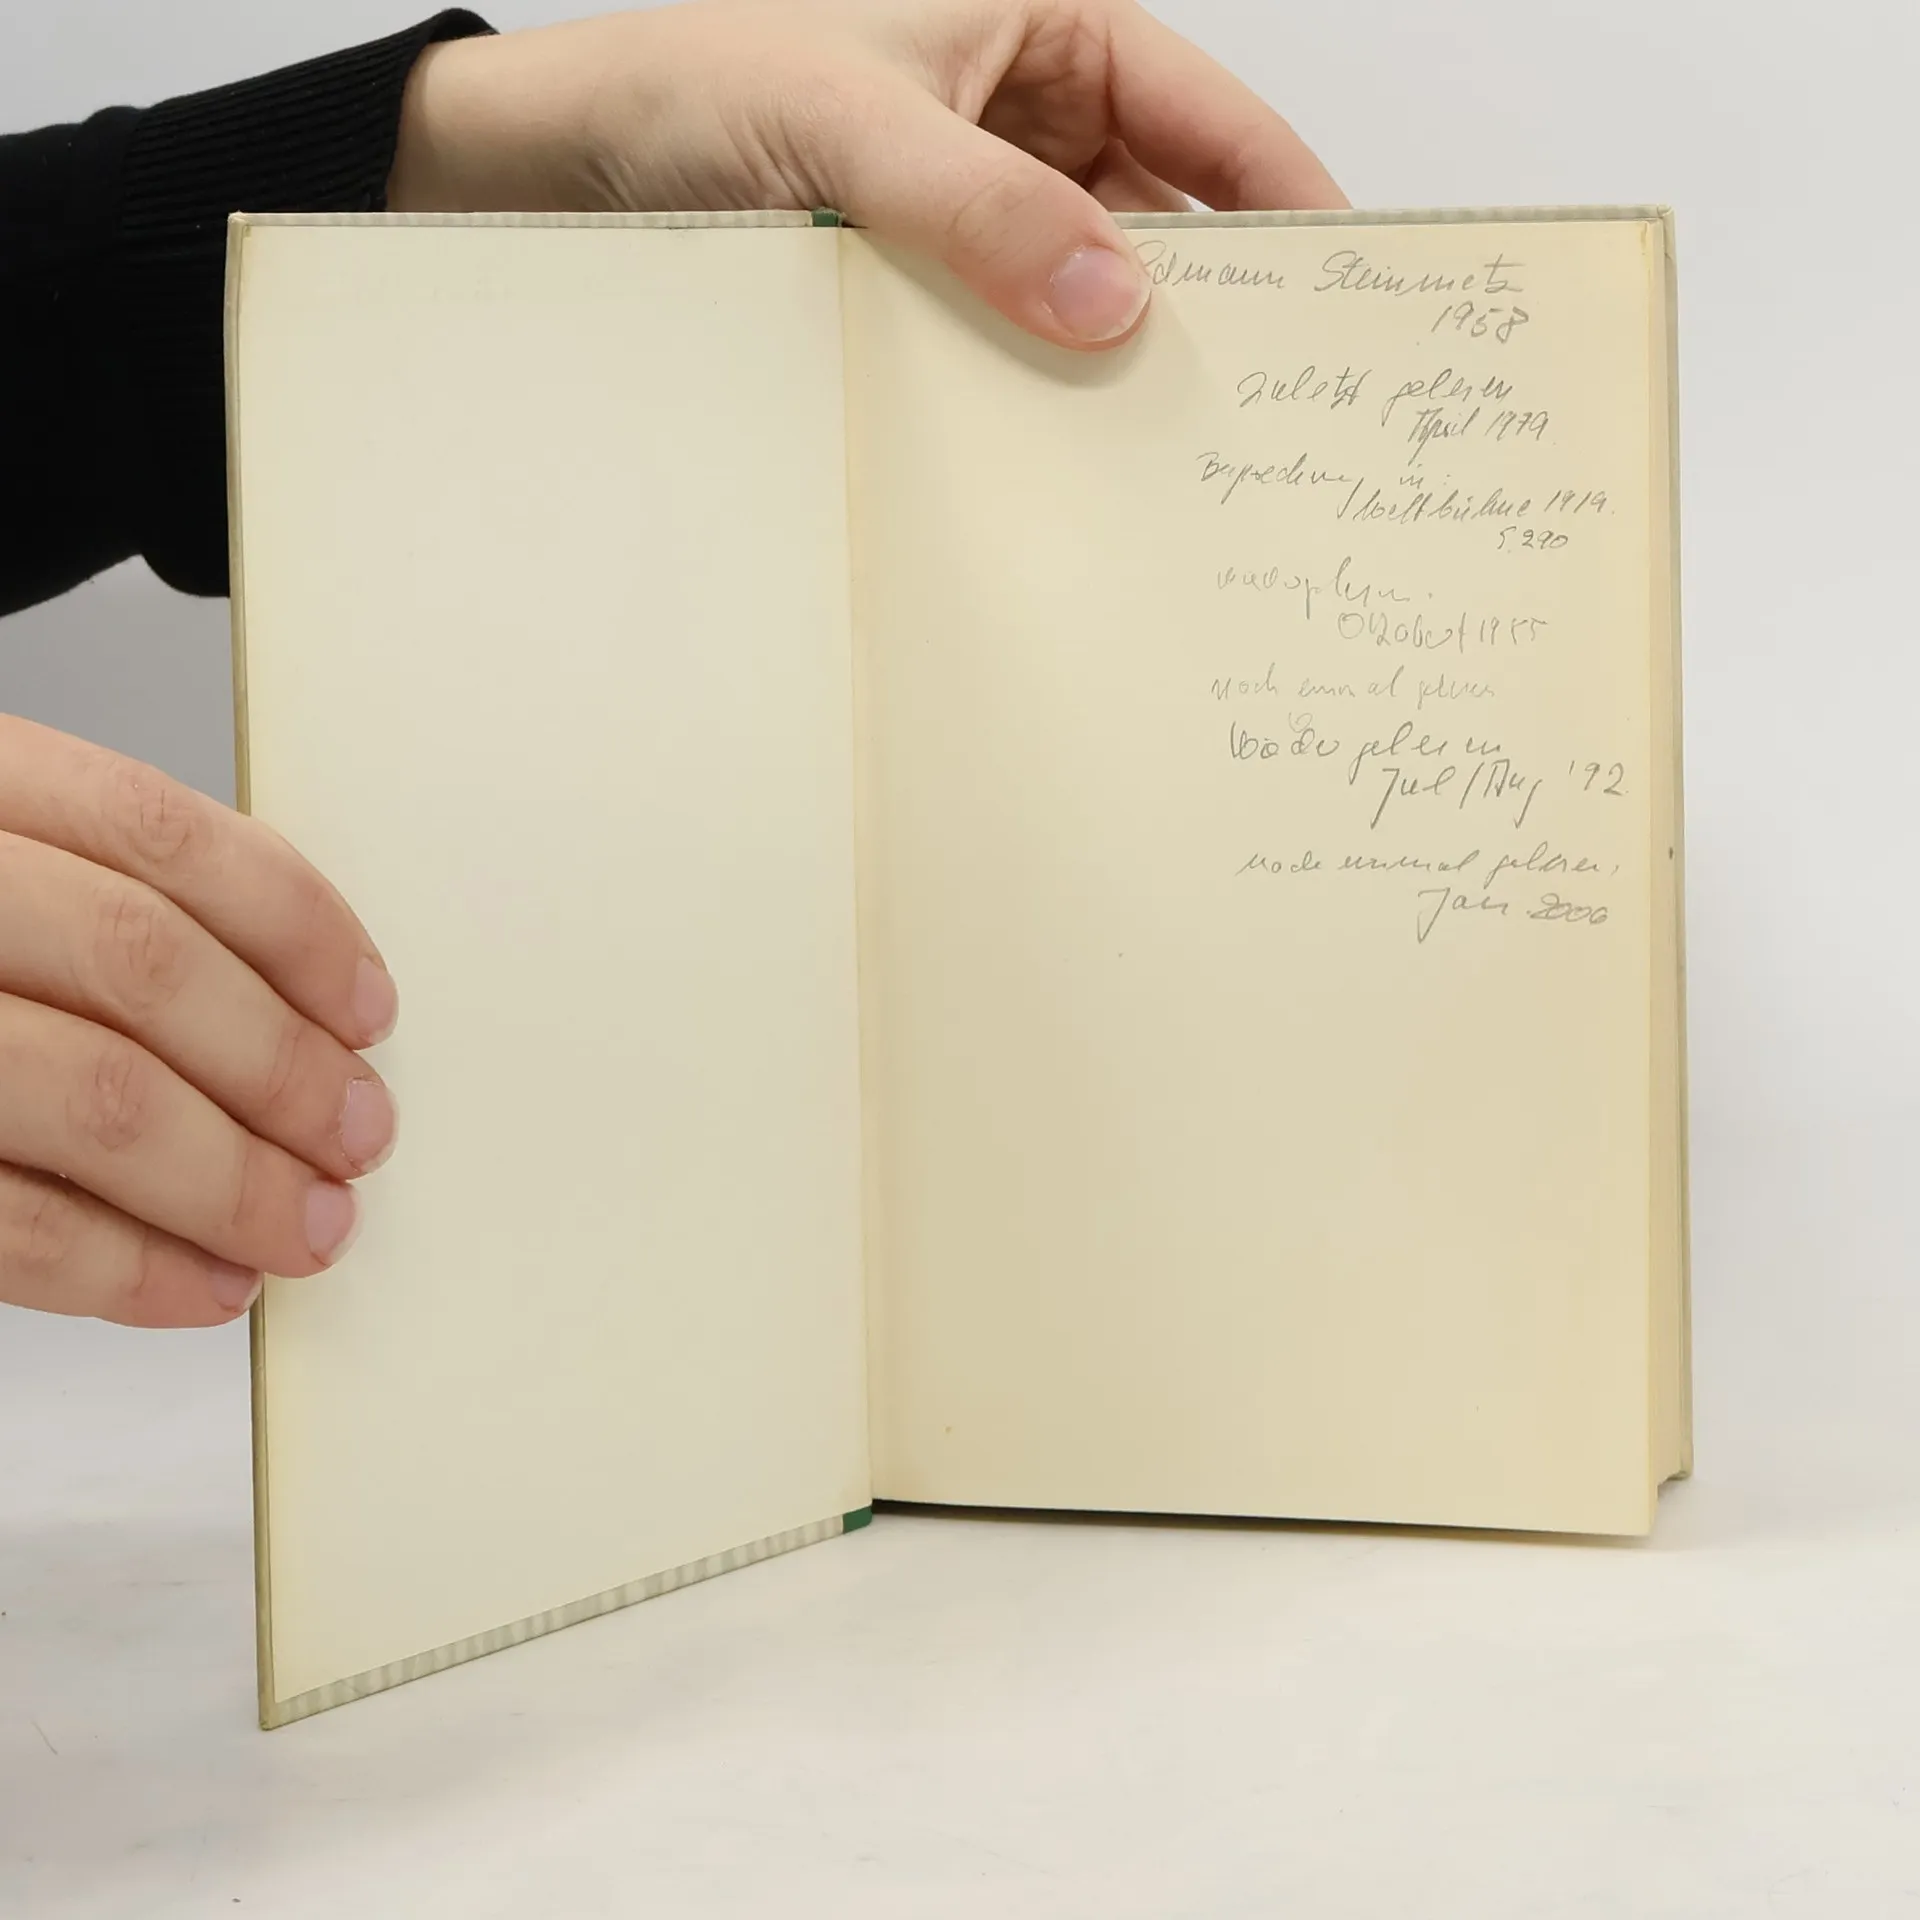 Erdmann Steinmetz
1958
zuletzt gelesen
April 1979
Besprechung in:
Weltbühne 1919.
S. 290
Oktober 1985
noch einmal gelesen
Wieder gelesen
Jul/Aug '92
noch einmal gelesen,
Jan. 2006